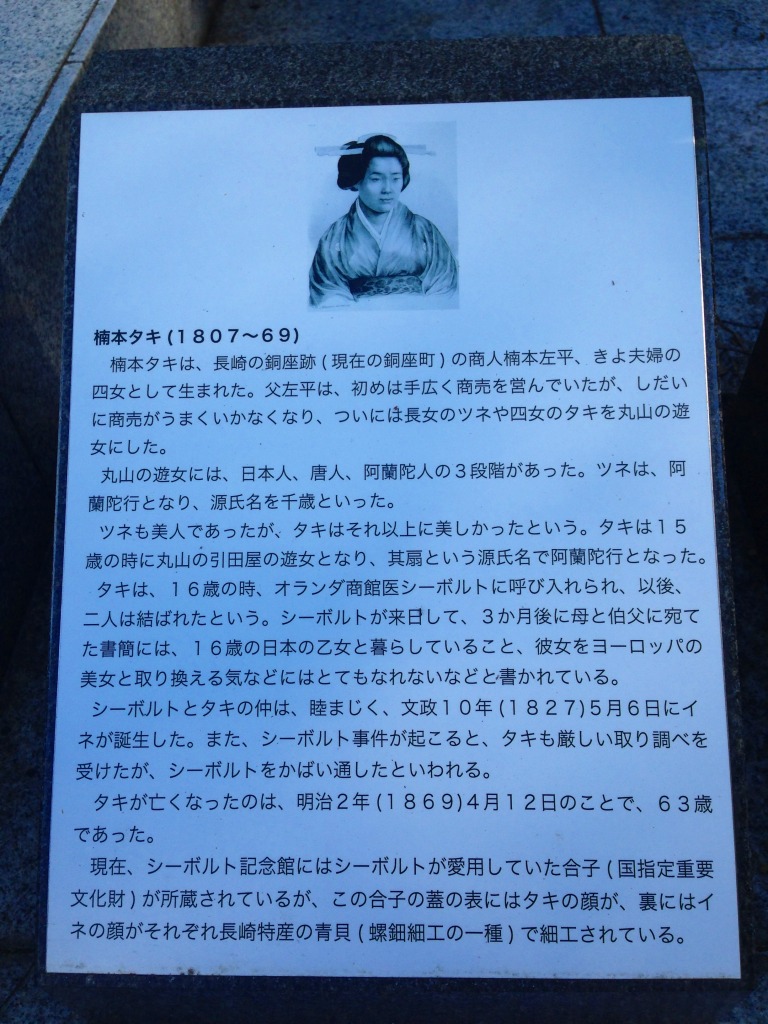 楠本タキ(1807～69)
楠本タキは、長崎の銅座跡(現在の銅座町)の商人楠本左平、きよ夫婦の
四女として生まれた。父左平は、初めは手広く商売を営んでいたが、しだい
に商売がうまくいかなくなり、ついには長女のツネや四女のタキを丸山の遊
女にした。
丸山の遊女には、日本人、唐人、阿蘭陀人の3段階があった。ツネは、阿
蘭陀行となり、源氏名を千歳といった。
ツネも美人であったが、タキはそれ以上に美しかったという。タキは15
歳の時に丸山の引田屋の遊女となり、其扇という源氏名で阿蘭陀行となった。
タキは、16歳の時、オランダ商館医シーボルトに呼び入れられ、以後、
二人は結ばれたという。シーボルトが来日して、3か月後に母と伯父に宛て
た書簡には、16歳の日本の乙女と暮らしていること、彼女をヨーロッパの
美女と取り換える気などにはとてもなれないなどと書かれている。
シーボルトとタキの仲は、睦まじく、文政10年(1827)5月6日にイ
ネが誕生した。また、シーボルト事件が起こると、タキも厳しい取り調べを
受けたが、シーボルトをかばい通したといわれる。
タキが亡くなったのは、明治2年(1869)4月12日のことで、63歳
であった。
現在、シーボルト記念館にはシーボルトが愛用していた合子(国指定重要
文化財)が所蔵されているが、この合子の蓋の表にはタキの顔が、裏にはイ
ネの顔がそれぞれ長崎特産の青貝(螺鈿細工の一種)で細工されている。